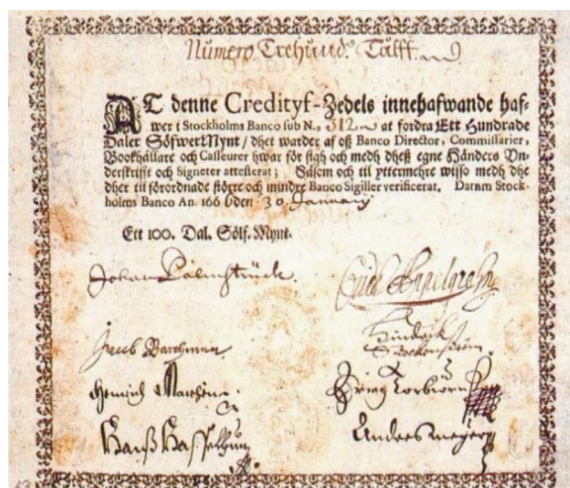 Numero Trehund: Tålff
AT denne Credityf-Zedels innehafwande haf-
wer i Stockholms Banco sub N.o 312 at fordra Ett Hundrade
Daler Söfwer Mynt / dhet warder af oß Banco Director, Commissarier,
Bookhållare och Casseurer hwar för sigh och medh dheß egne Händers Un-
derskrifft och Signeter attesterat; Såsom och til yttermehre wisso medh dhe
dher til förordnade större och mindre Banco Sigiller verificerat. Datum Stock-
holms Banco An. 1666 den 30 January
Ett 100. Dal. Sölf. Mynt.
Johan Palmstruch.
Hindrich
Jacob
Hanß
Anders Meyer